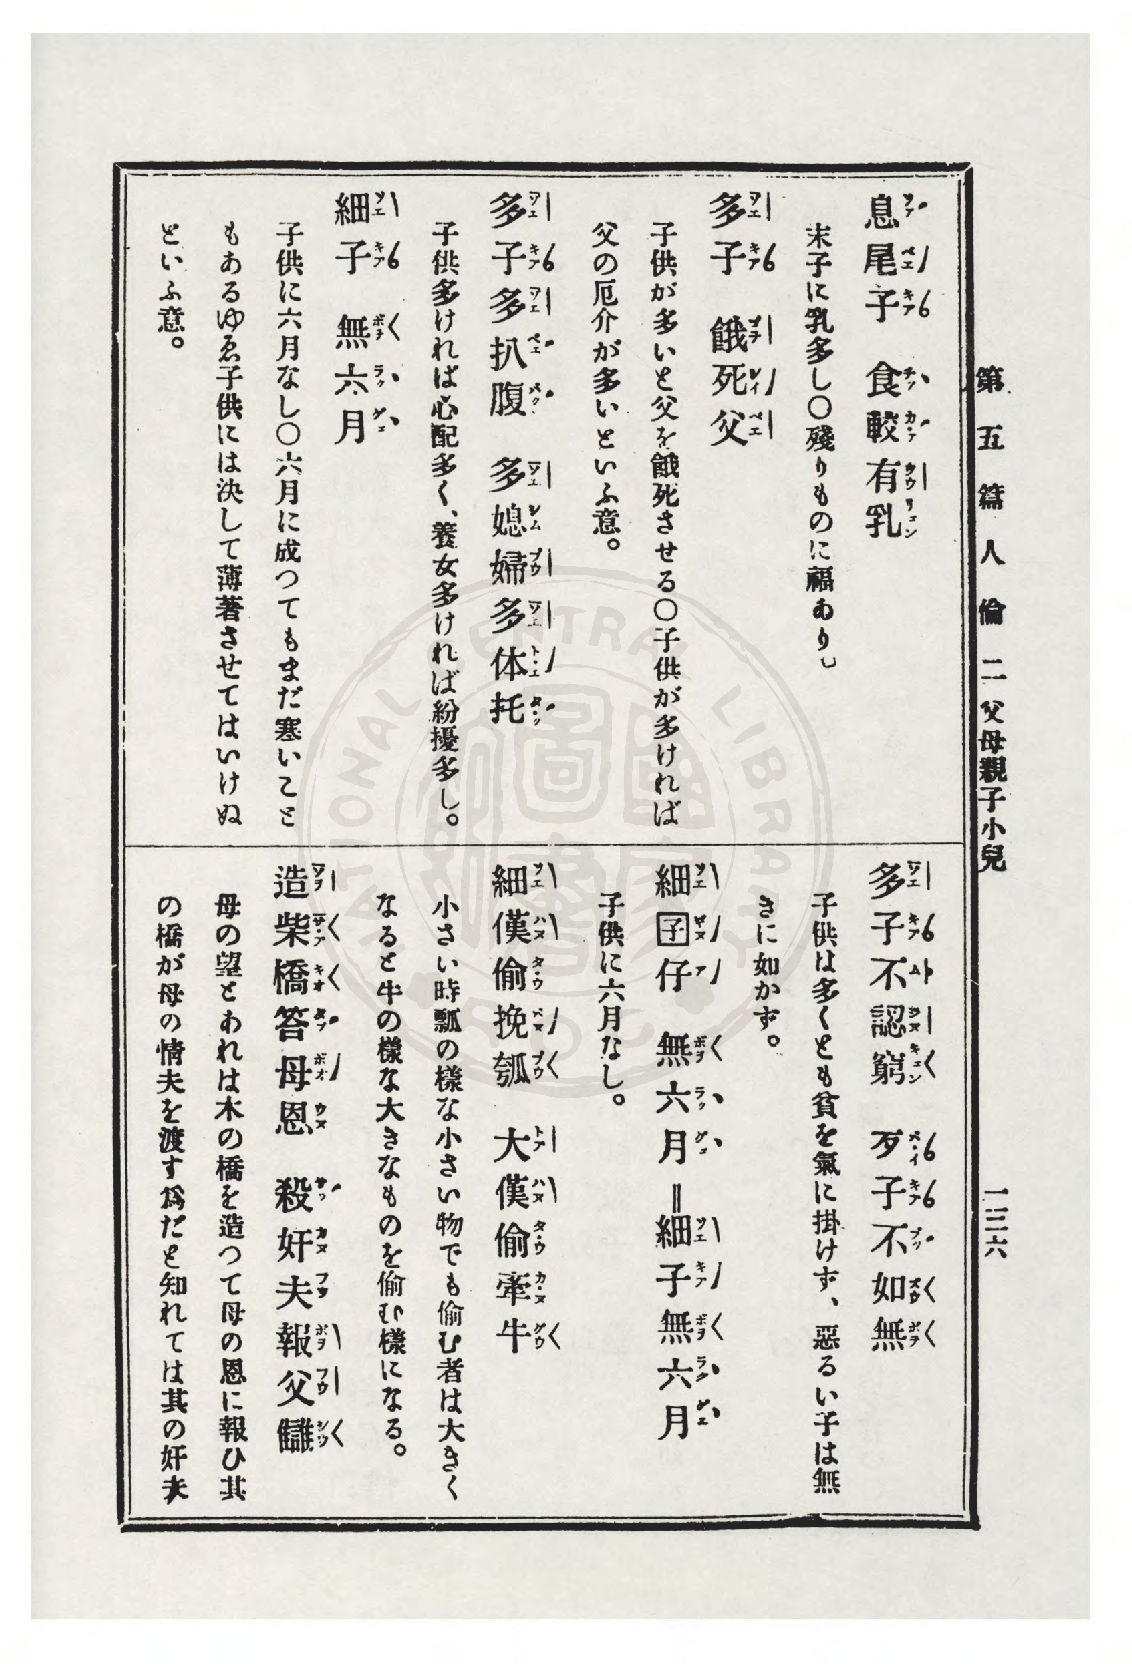 第五篇 人倫 二 父母親子小兒
一三六
息尾子 食較有乳
末子に乳多し〇殘りものに福あり。
多子 餓死父
子供が多いと父を餓死させる〇子供が多ければ
父の厄介が多いといふ意。
多子多扒腹 多媳婦多体托
子供多ければ心配多く、養女多ければ紛擾多し。
細子 無六月
子供に六月なし〇六月に成つてもまだ寒いこと
もあるゆゑ子供には決して薄著させてはいけぬ
といふ意。
多子不認窮 歹子不如無
子供は多くとも貧を氣に掛けず、惡るい子は無
きに如かず。
細囝仔 無六月=細子無六月
子供に六月なし。
細漢偷挽瓠 大漢偷牽牛
小さい時瓢の樣な小さい物でも偷む者は大きく
なると牛の樣な大きなものを偷む樣になる。
造柴橋答母恩 殺奸夫報父讎
母の望とあれば木の橋を造つて母の恩に報ひ其
の橋が母の情夫を渡す爲だと知れては其の奸夫
NATIONAL CENTRAL LIBRARY
R O C
國家圖書館